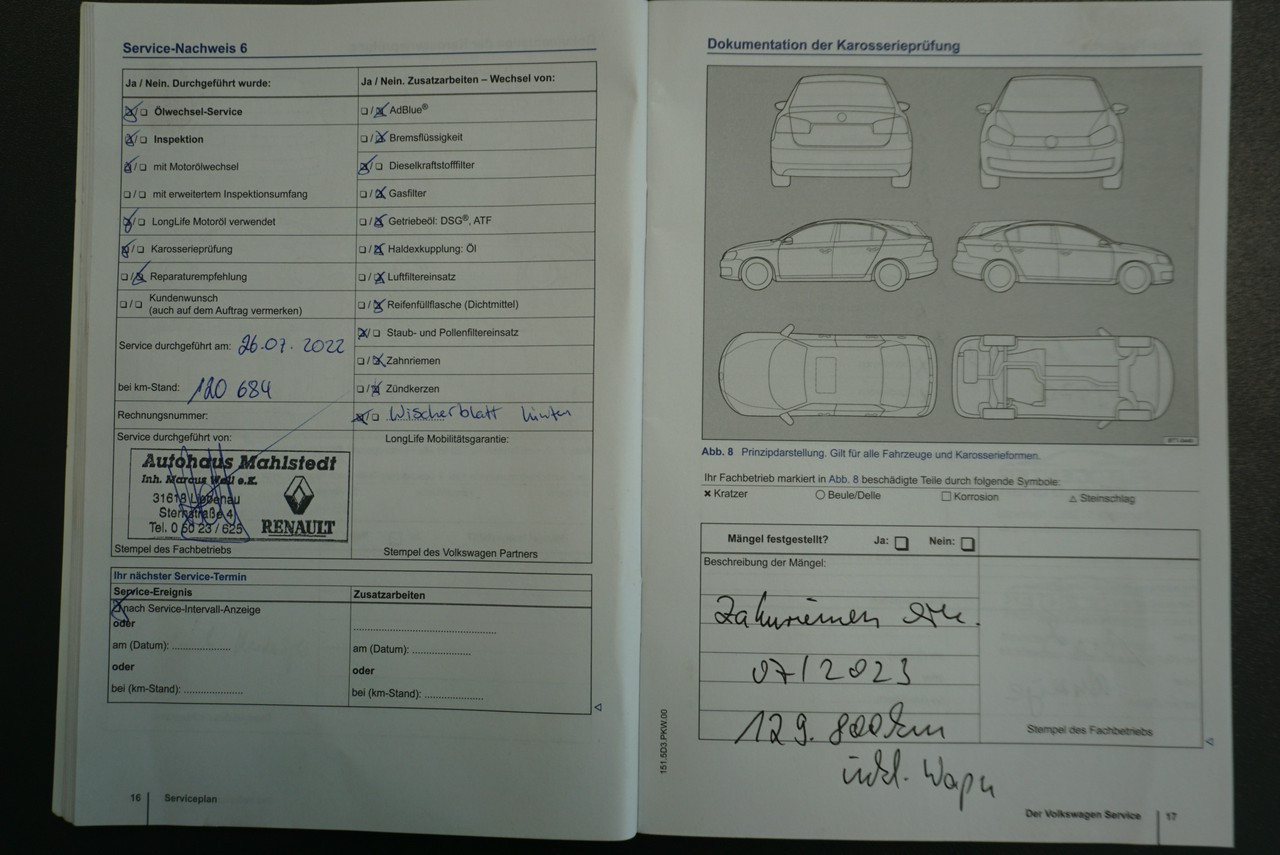 Service-Nachweis 6
Ja / Nein. Durchgeführt wurde:
Ölwechsel-Service
Inspektion
mit Motorölwechsel
mit erweitertem Inspektionsumfang
LongLife Motoröl verwendet
Karosserieprüfung
Reparaturempfehlung
Kundenwunsch
(auch auf dem Auftrag vermerken)
Service durchgeführt am: 26.07.2022
bei km-Stand: 120 684
Rechnungsnummer:
Service durchgeführt von:
Autohaus Mahlstedt
Inh. Marcus Woll e.K.
31618 Liebenau
Sternstraße 4
Tel. 0 50 23 / 625
RENAULT
Stempel des Fachbetriebs
Ja / Nein. Zusatzarbeiten – Wechsel von:
AdBlue®
Bremsflüssigkeit
Dieselkraftstofffilter
Gasfilter
Getriebeöl: DSG®, ATF
Haldexkupplung: Öl
Luftfiltereinsatz
Reifenfüllflasche (Dichtmittel)
Staub- und Pollenfiltereinsatz
Zahnriemen
Zündkerzen
Wischerblatt hinten
LongLife Mobilitätsgarantie:
Stempel des Volkswagen Partners
Ihr nächster Service-Termin
Service-Ereignis
nach Service-Intervall-Anzeige
oder
am (Datum): ....................
oder
bei (km-Stand): ....................
Zusatzarbeiten
..................................................
am (Datum): ....................
oder
bei (km-Stand): ....................
16 Serviceplan
Dokumentation der Karosserieprüfung
Abb. 8 Prinzipdarstellung. Gilt für alle Fahrzeuge und Karosserieformen.
Ihr Fachbetrieb markiert in Abb. 8 beschädigte Teile durch folgende Symbole:
Kratzer Beule/Delle Korrosion Steinschlag
Mängel festgestellt? Ja: Nein:
Beschreibung der Mängel:
07/2023
129.800km
inkl.
Stempel des Fachbetriebs
151.5D3.PKW.00
Der Volkswagen Service 17